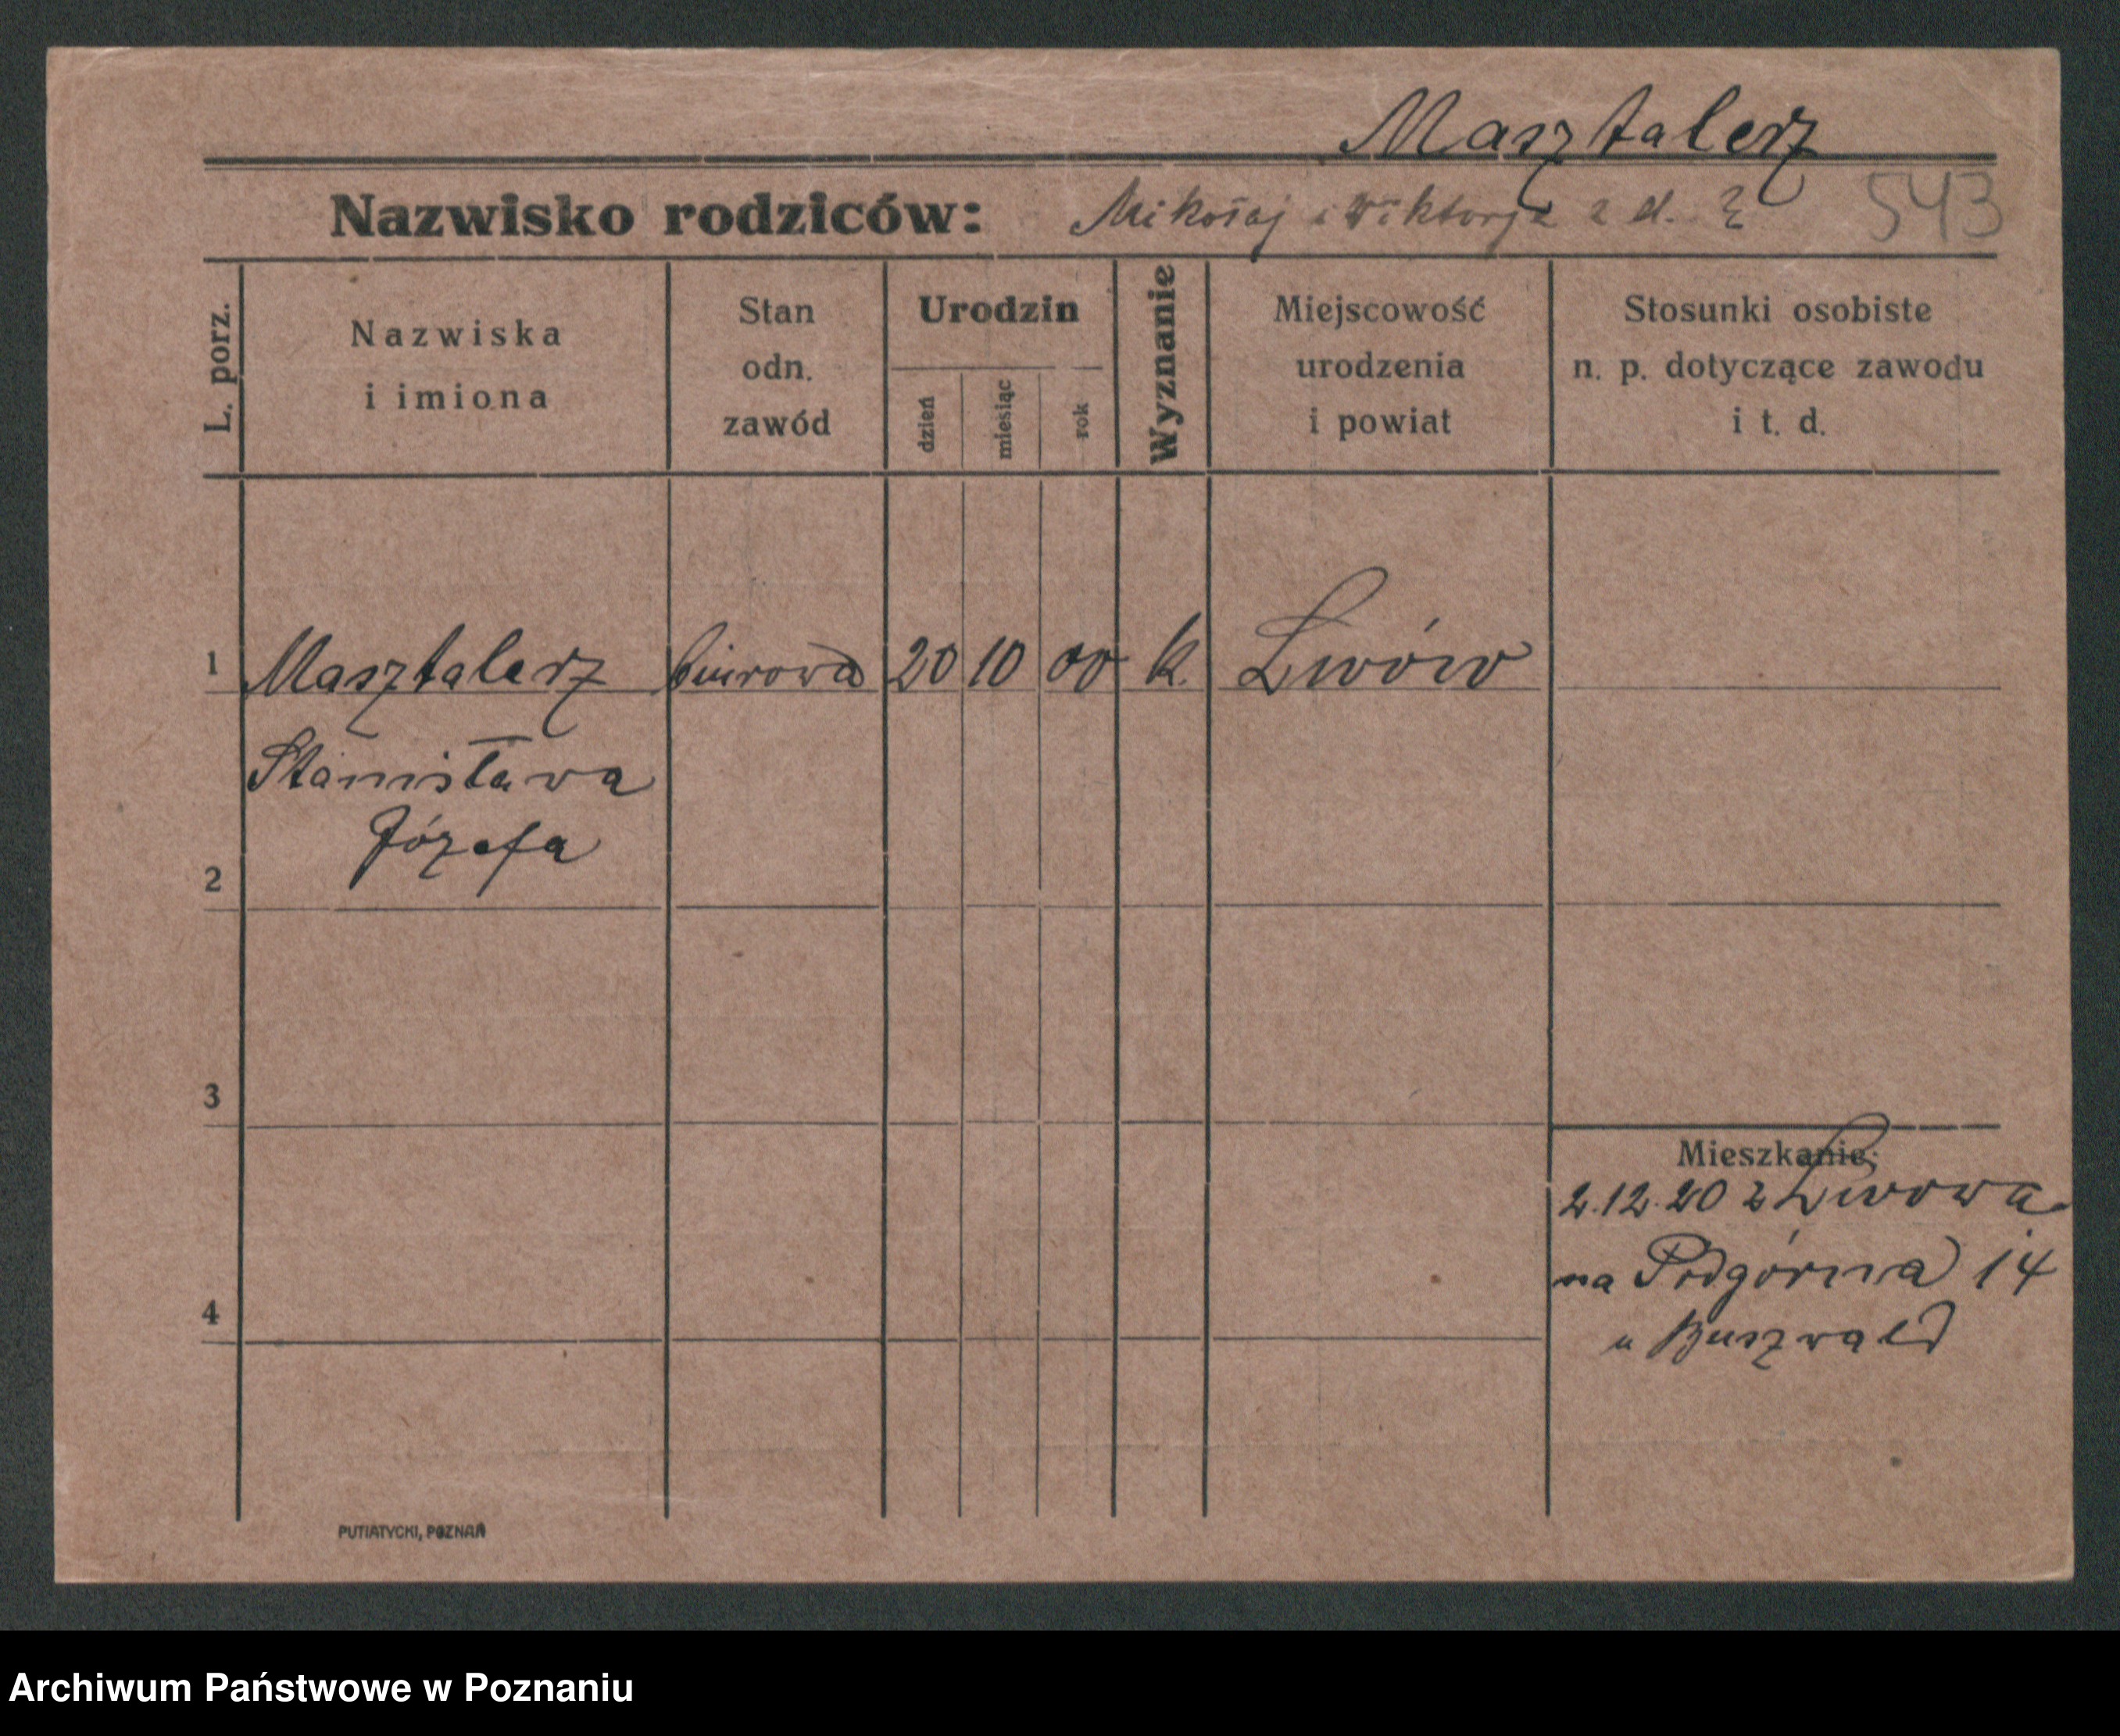 Masztalerz
Nazwisko rodziców: Mikołaj i Wiktorja z d. ? 543
L. porz.
Nazwiska
i imiona
Stan
odn.
zawód
Urodzin
dzień
miesiąc
rok
Wyznanie
Miejscowość
urodzenia
i powiat
Stosunki osobiste
n. p. dotyczące zawodu
i t. d.
1 Masztalerz biurowa 20 10 00 k. Lwów
Stanisława
Józefa
2
3
Mieszkanie:
2.12.20 z Lwowa
na Podgórna 14
4
u Buszwald
PUTIATYCKI, POZNAŃ
Archiwum Państwowe w Poznaniu